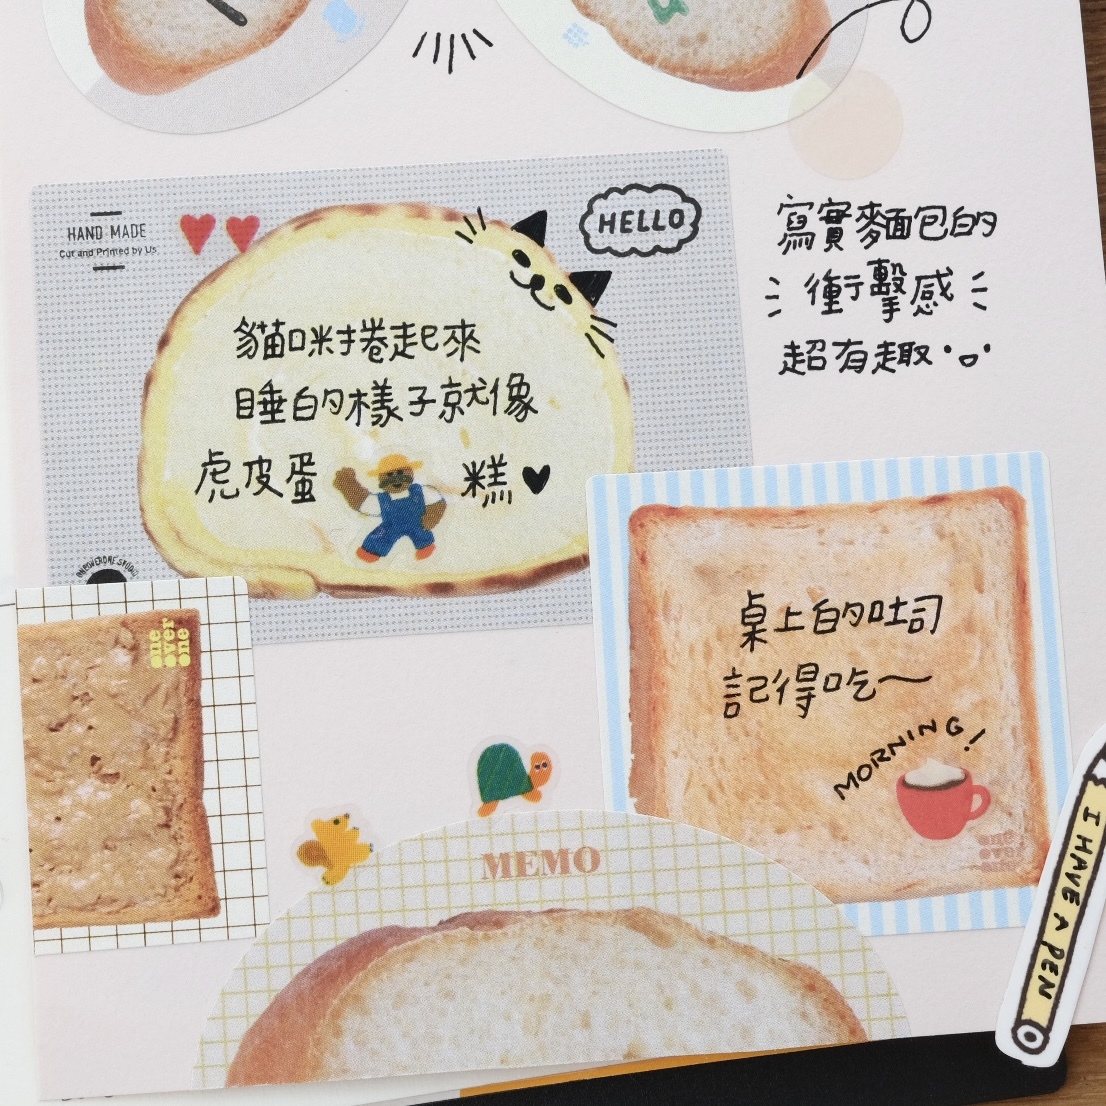 HAND MADE
Cut and Printed by Us
HELLO
貓咪捲起來
睡的樣子就像
虎皮蛋糕
寫實麵包的
衝擊感
超有趣
one
over
one
桌上的吐司
記得吃～
MORNING!
one
over
one
MEMO
I HAVE A PEN